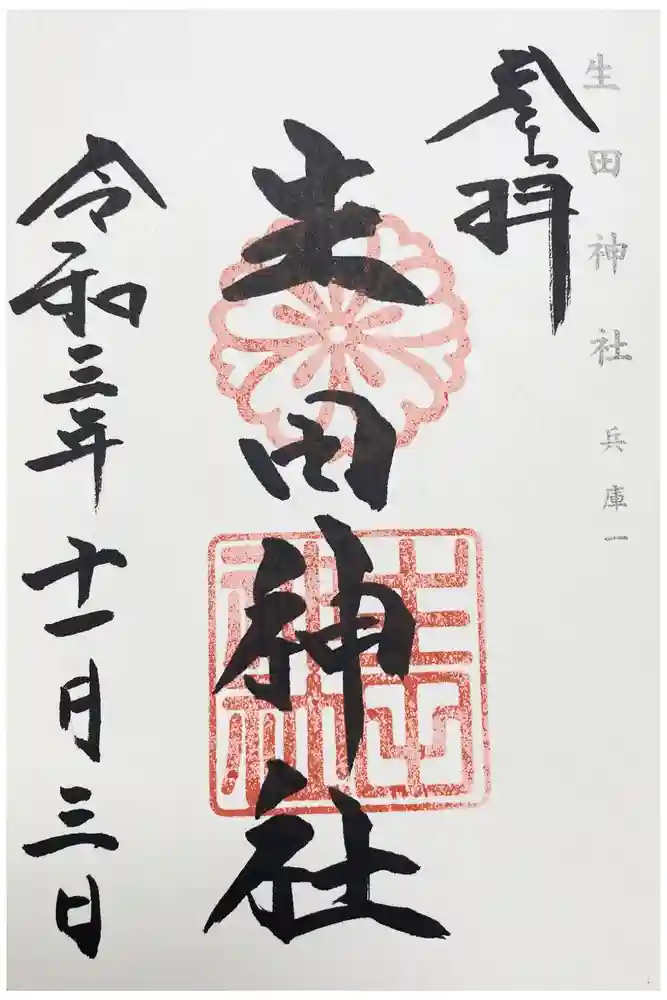 生田神社 兵庫一
奉拝
生田神社
生田神社
令和三年十一月三日